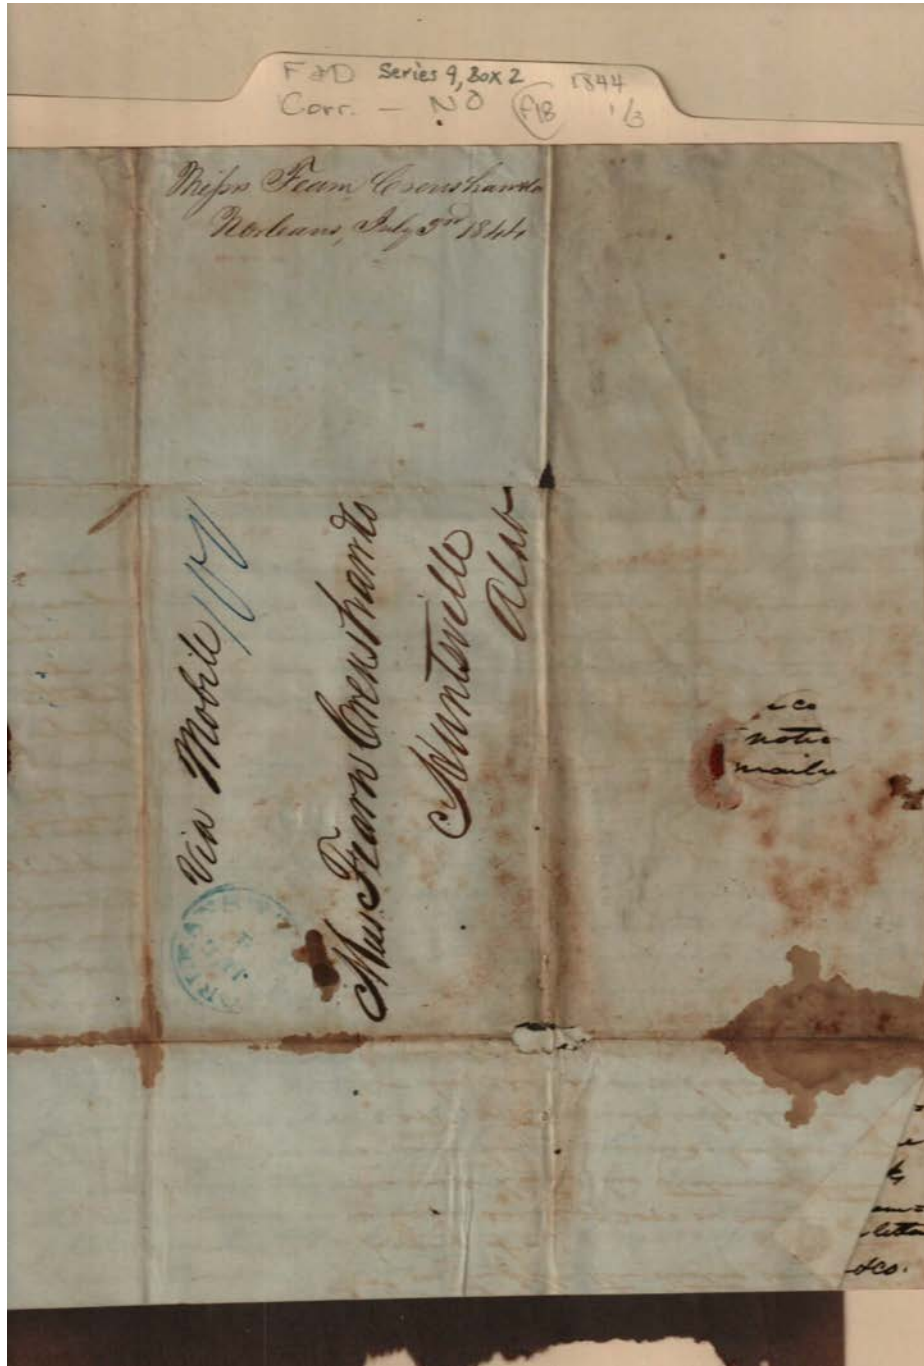 F&D Series 9, Box 2 1844
Corr. - NO F18 1/3
Messrs Fearn Crenshaw & Co
Norleans, July 3rd 1844
Via Mobile
Mess Fearn Crenshaw & Co
Huntsville
Alab
& co
notice
mails
letter
& co.